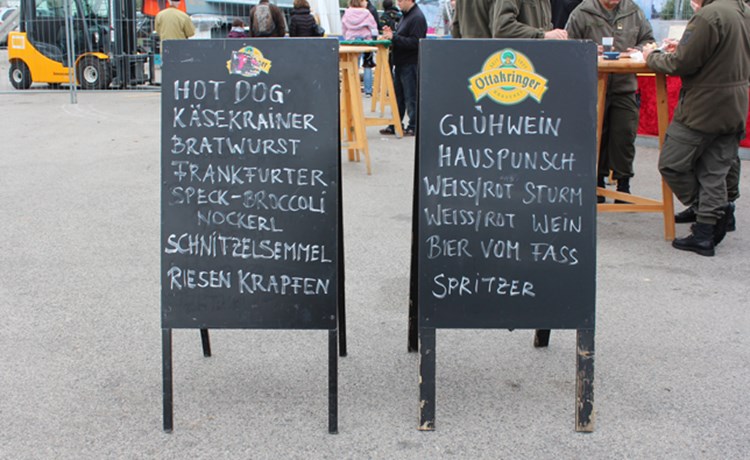 HOT DOG
KÄSEKRAINER
BRATWURST
FRANKFURTER
SPECK-BROCCOLI
NOCKERL
SCHNITZELSEMMEL
RIESEN KRAPFEN
Ottakringer
BRAUEREI
GLÜHWEIN
HAUSPUNSCH
WEISS/ROT STURM
WEISS/ROT WEIN
BIER VOM FASS
SPRITZER